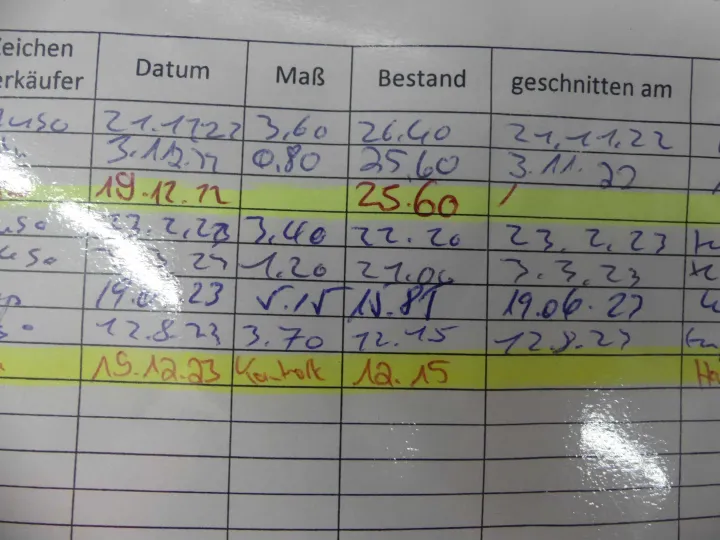 Zeichen Verkäufer Datum Maß Bestand geschnitten am
21.11.22 3,60 26.40 21.11.22
3.11.22 0,80 25,60 3.11.22
19.12.22 25.60 /
23.2.23 3,40 22.20 23.2.23
3.3.23 1.20 21,00 3.3.23
19.06.23 5.15 15.85 19.06.23
12.8.23 3.70 12.15 12.8.23
15.12.23 Kontrolle 12.15